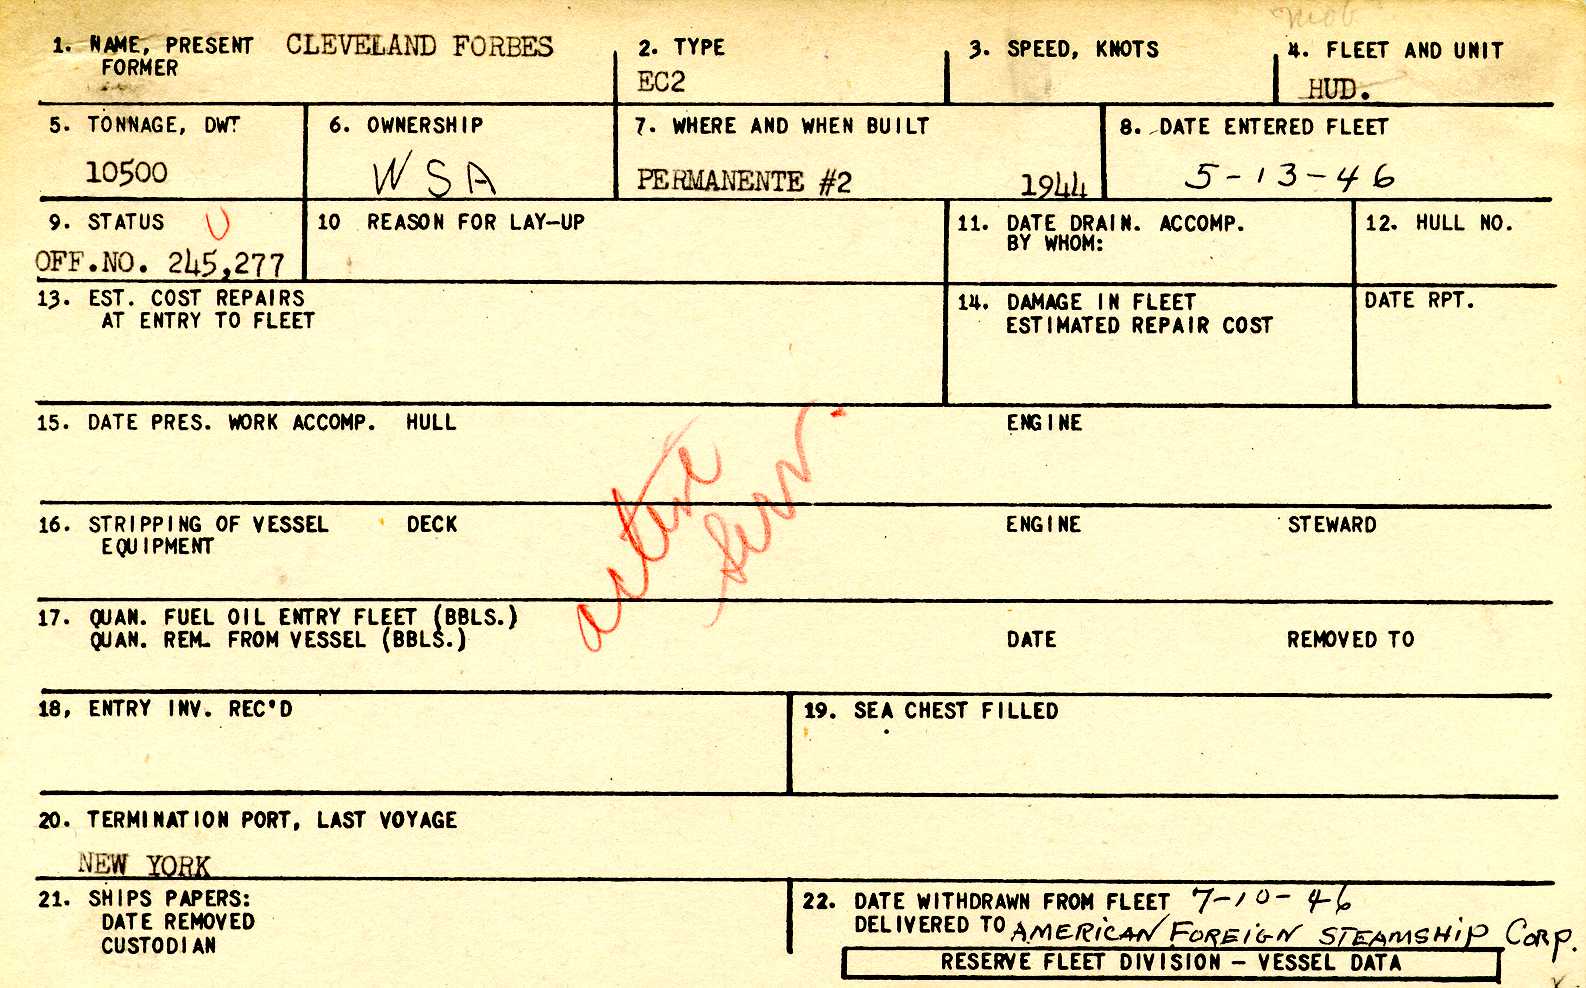 Mob
1. NAME, PRESENT CLEVELAND FORBES
FORMER
2. TYPE
EC2
3. SPEED, KNOTS
4. FLEET AND UNIT
HUD.
5. TONNAGE, DWT
10500
6. OWNERSHIP
WSA
7. WHERE AND WHEN BUILT
PERMANENTE #2 1944
8. DATE ENTERED FLEET
5-13-46
9. STATUS U
OFF.NO. 245,277
10 REASON FOR LAY-UP
11. DATE DRAIN. ACCOMP.
BY WHOM:
12. HULL NO.
13. EST. COST REPAIRS
AT ENTRY TO FLEET
14. DAMAGE IN FLEET
ESTIMATED REPAIR COST
DATE RPT.
15. DATE PRES. WORK ACCOMP. HULL ENGINE
active
serv.
16. STRIPPING OF VESSEL DECK ENGINE STEWARD
EQUIPMENT
17. QUAN. FUEL OIL ENTRY FLEET (BBLS.)
QUAN. REM. FROM VESSEL (BBLS.) DATE REMOVED TO
18, ENTRY INV. REC'D
19. SEA CHEST FILLED
20. TERMINATION PORT, LAST VOYAGE
NEW YORK
21. SHIPS PAPERS:
DATE REMOVED
CUSTODIAN
22. DATE WITHDRAWN FROM FLEET 7-10-46
DELIVERED TO AMERICAN FOREIGN STEAMSHIP CORP.
RESERVE FLEET DIVISION - VESSEL DATA